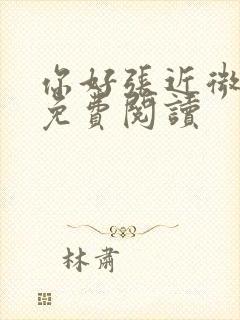 你好張近微
免費閱讀
林肅